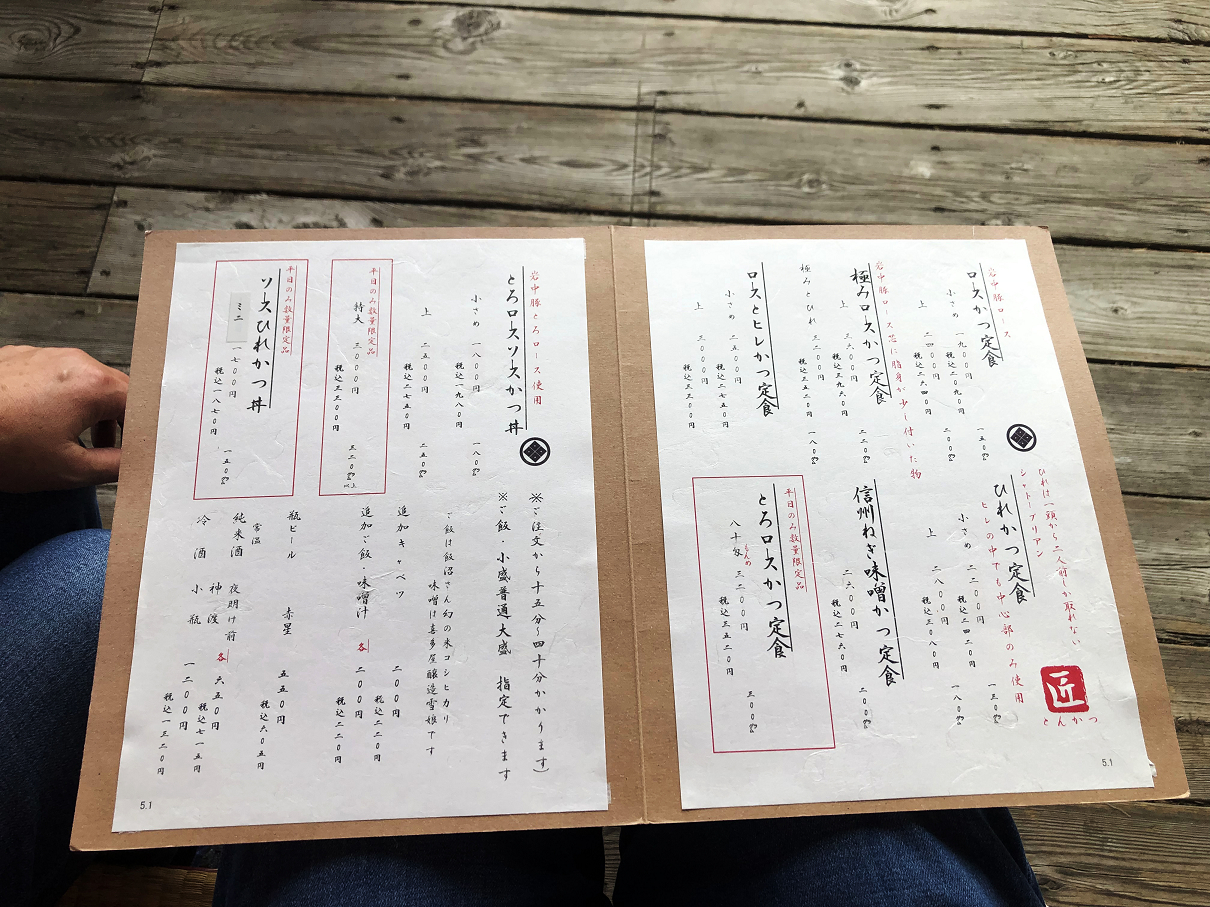 匠
とんかつ
岩中豚ロース
ロースかつ定食
小さめ 一九〇〇円 一五〇㌘
税込二〇九〇円
上 二四〇〇円 二〇〇㌘
税込二六四〇円
岩中豚ロース芯に脂身が少し付いた物
極みロースかつ定食
上 三六〇〇円 二二〇㌘
税込三九六〇円
極みとひれ 三二〇〇円 一八〇㌘
税込三五二〇円
ロースとヒレかつ定食
小さめ 二五〇〇円
税込二七五〇円
上
ひれは一頭から二人前しか取れない
シャトーブリアン
ヒレの中でも中心部のみ使用
ひれかつ定食
小さめ 二二〇〇円 一三〇㌘
税込二四二〇円
上 二八〇〇円 一八〇㌘
税込三〇八〇円
信州ねぎ味噌かつ定食
二六〇〇円 二〇〇㌘
税込二七六〇円
平日のみ数量限定品
とろロースかつ定食
八十匁 三二〇〇円 三〇〇㌘
もんめ
税込三五二〇円
5.1
岩中豚とろロース使用
とろロースソースかつ丼
小さめ 一八〇〇円 一八〇㌘
税込一九八〇円
上 二五〇〇円 二五〇㌘
税込二七五〇円
平日のみ数量限定品
特大 三〇〇〇円 三二〇㌘以上
税込三三〇〇円
平日のみ数量限定品
ソースひれかつ丼
ミニ 一七〇〇円 一五〇㌘
税込一八七〇円
※ご注文から十五分～四十分かかります)
※ご飯・小盛普通大盛 指定できます
ご飯は飯沼さん幻の米コシヒカリ
味噌は喜多屋醸造雪根です
追加キャベツ 二〇〇円
税込二二〇円
追加ご飯・味噌汁 各 二〇〇円
税込二二〇円
瓶ビール 赤星 五五〇円
税込六〇五円
常温
純米酒 夜明け前 各 六五〇円
神渡 税込七一五円
冷酒 小瓶 一二〇〇円
税込一三二〇円
5.1